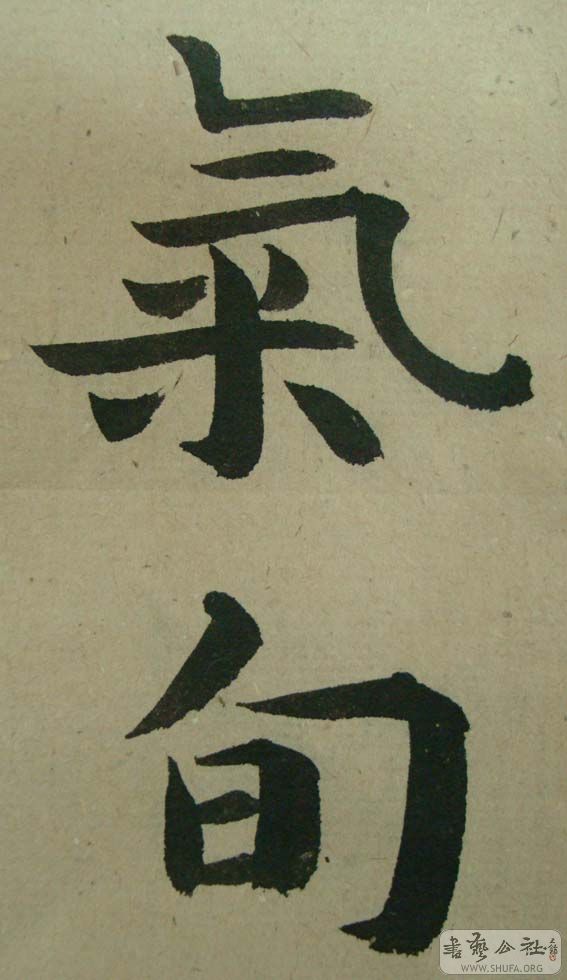 氣旬
書藝公社
WWW.SHUFA.ORG